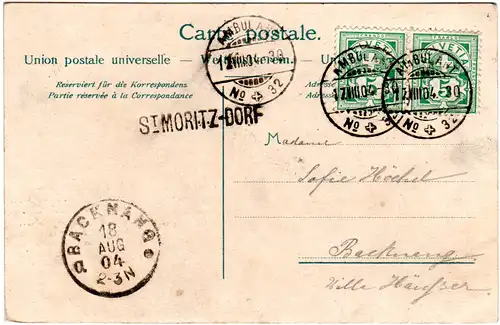 Carte postale.
Union postale universelle — Weltpostverein. —
Reserviert für die Korrespondenz
Partie réservée à la Correspondance
AMBULANT
17.VIII.04.-30
No 32
HELVETIA
5 5
AMBULANT
17.VIII.04.-30
No
AMBULANT
17.VIII.04.-30
No 32
ST MORITZ-DORF
Madame
Sofie Höchel
Backnang
Villa Häußer
BACKNANG
18
AUG
04
2-3N